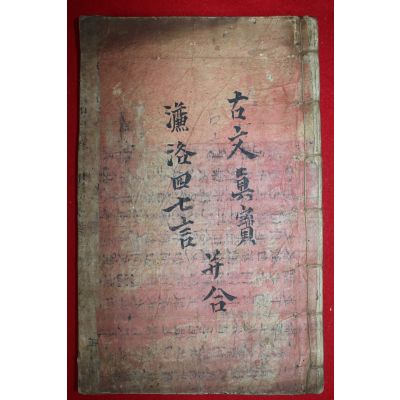 古文眞寶
并合
濂洛四七言